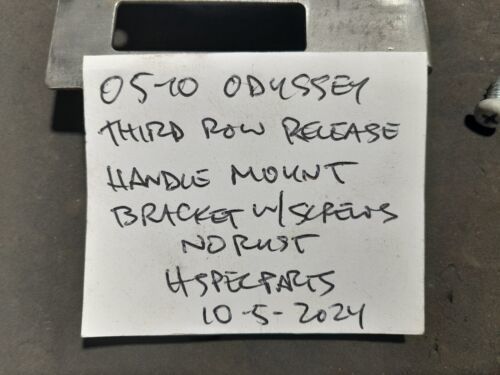 05-10 ODYSSEY
THIRD ROW RELEASE
HANDLE MOUNT
BRACKET W/SCREWS
NO RUST
HSPECPARTS
10-5-2024